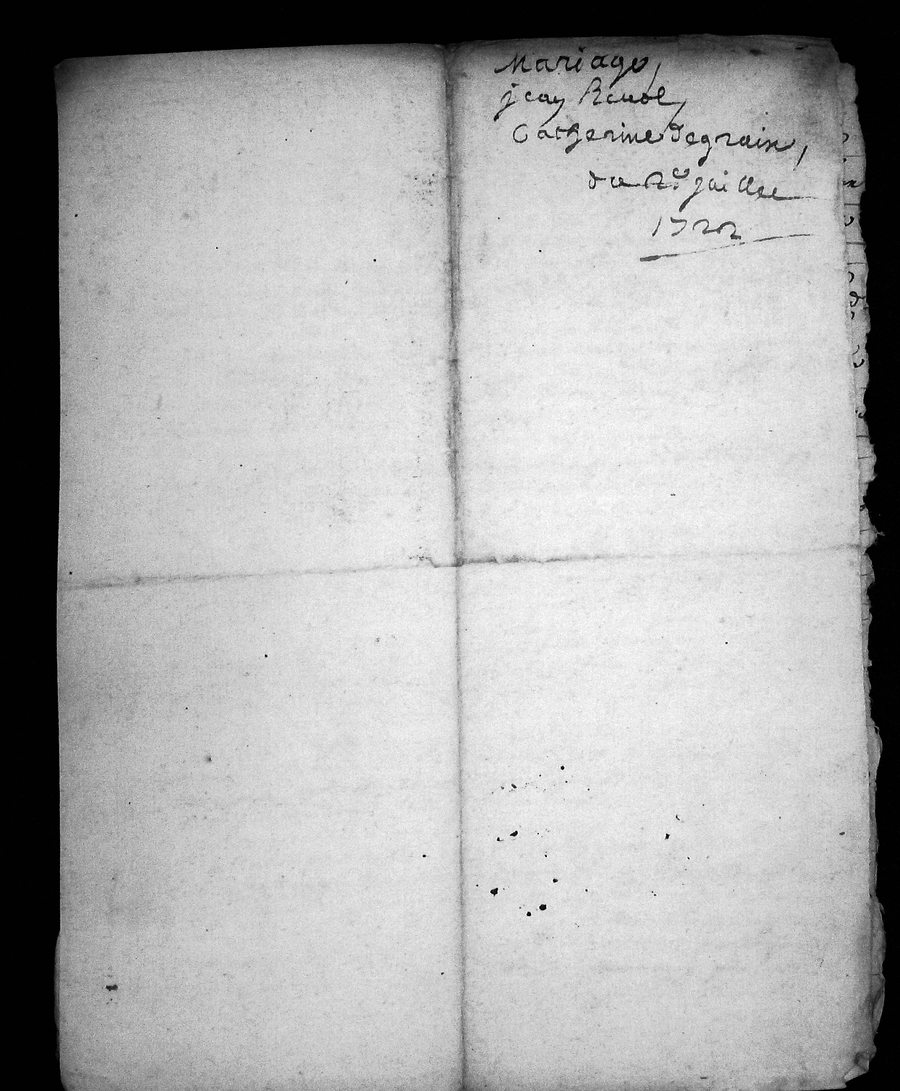 Mariage,
jean Renol,
Catherine Segrain,
du 2e juillee
1722